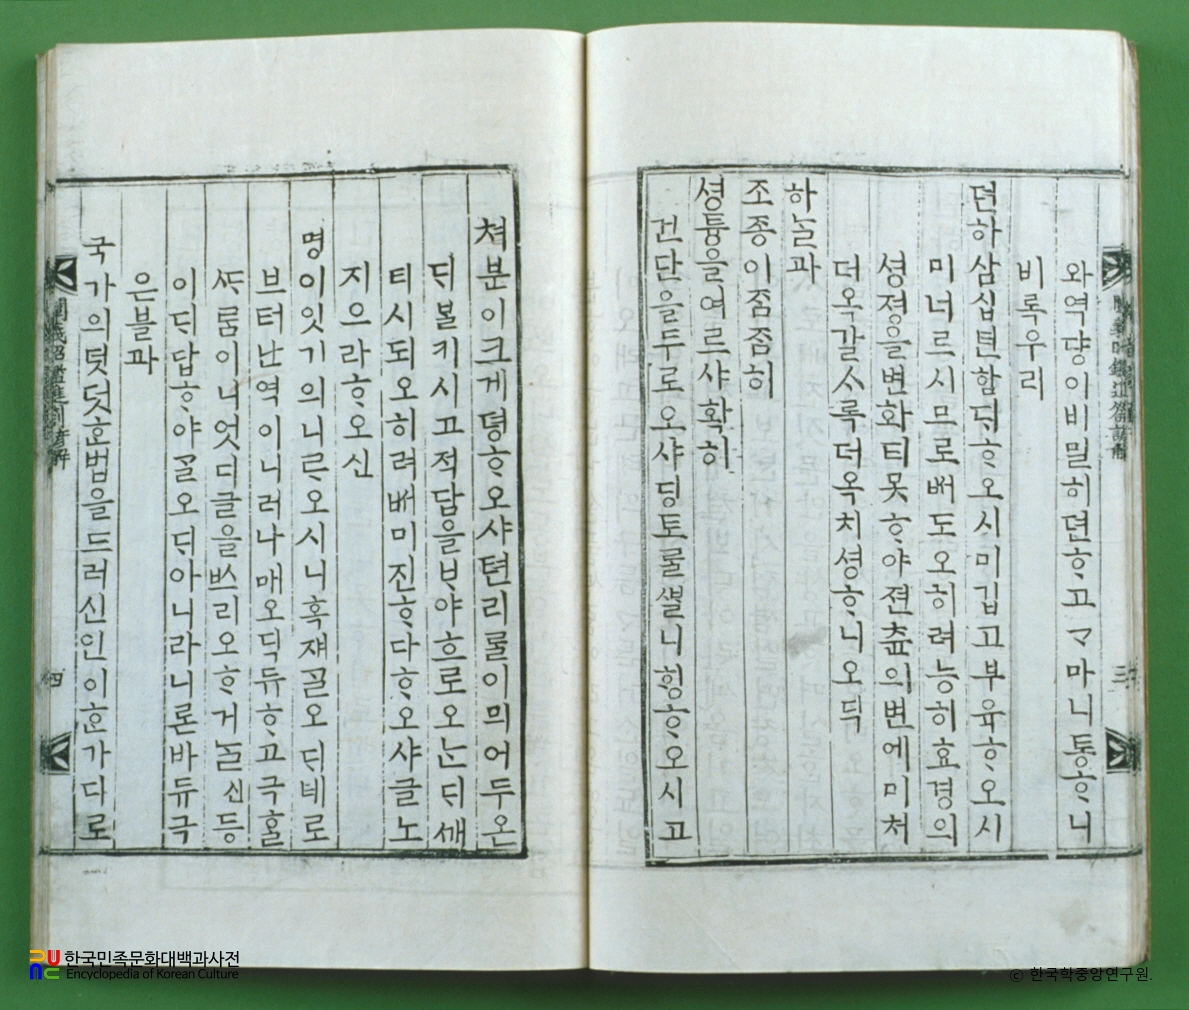 와역댱이비밀히뎐ᄒᆞ고ᄀᆞ마니통ᄒᆞ니
비록우리
뎐하삼십뎐함ᄃᆡᄒᆞ오시미깁고부육ᄒᆞ오시
미너르시므로ᄡᅥ도오히려능히효경의
셩졍을변화티못ᄒᆞ야젼츈의변에미처
더옥갈ᄉᆞ록더옥치셩ᄒᆞ니오딕
하ᄂᆞᆯ과
조종이좀좀히
셩튱을여르샤확히
건단을두로오샤딩토ᄅᆞᆯᄲᆞᆯ니ᄒᆡᆼᄒᆞ오시고
쳐분이크게뎡ᄒᆞ오샤텬리ᄅᆞᆯ이믜어두온
ᄃᆡᄇᆞᆯ키시고적답을보야흐로오ᄂᆞᆫᄃᆡᄭᅢ
티시되오히려ᄡᅥ미진ᄒᆞ다ᄒᆞ오샤글노
지으라ᄒᆞ오신
명이잇기의니르오시니혹쟤ᄀᆞᆯ오ᄃᆡ녜로
브터난역이니러나매오딕듀ᄒᆞ고극홀
ᄯᆞᄅᆞᆷ이니엇디글을ᄡᅳ리오ᄒᆞ거ᄂᆞᆯ신등
이ᄃᆡ답ᄒᆞ야ᄀᆞᆯ오ᄃᆡ아니라니론바듀극
은블과
국가의덧덧ᄒᆞᆫ법을드러신인이ᄒᆞᆫ가디로
四
한국민족문화대백과사전
Encyclopedia of Korean Culture
© 한국학중앙연구원.